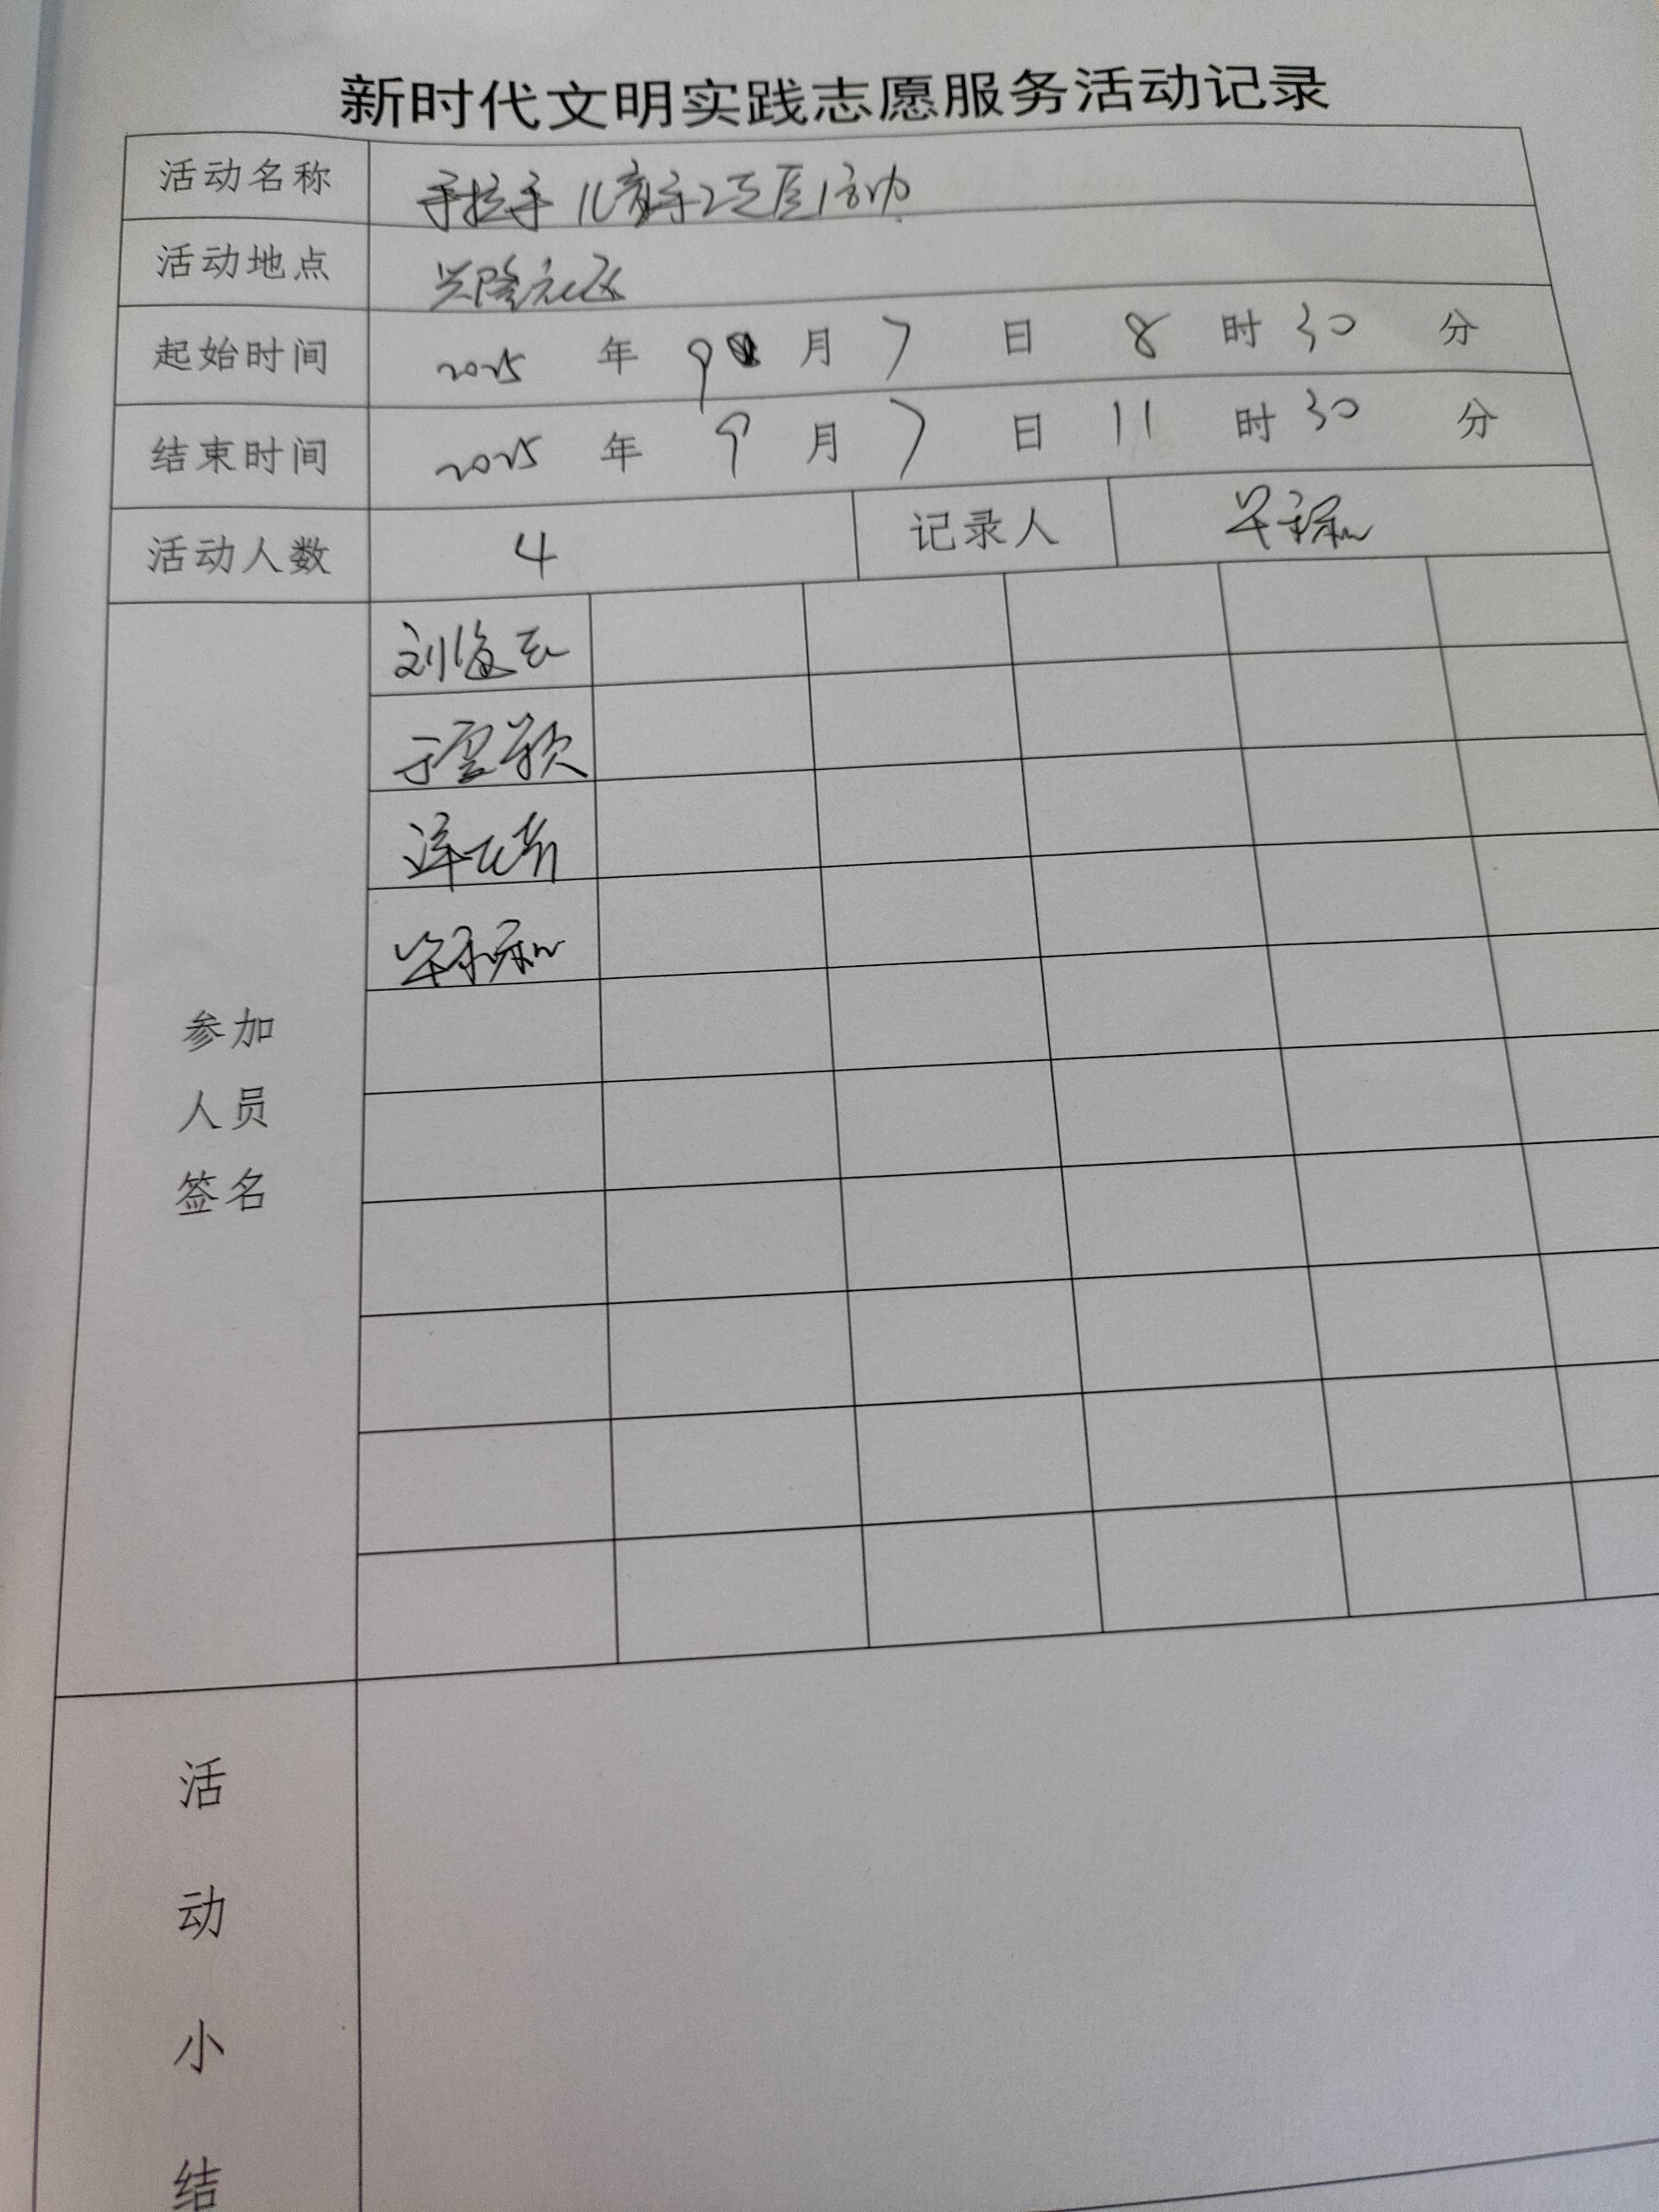 新时代文明实践志愿服务活动记录
活动名称 手拉手儿童手工活动
活动地点 兴隆社区
起始时间 2025 年 9 月 7 日 8 时 30 分
结束时间 2025 年 9 月 7 日 11 时 30 分
活动人数 4 记录人
刘海云
于雪颖
参加
人员
签名
活
动
小
结